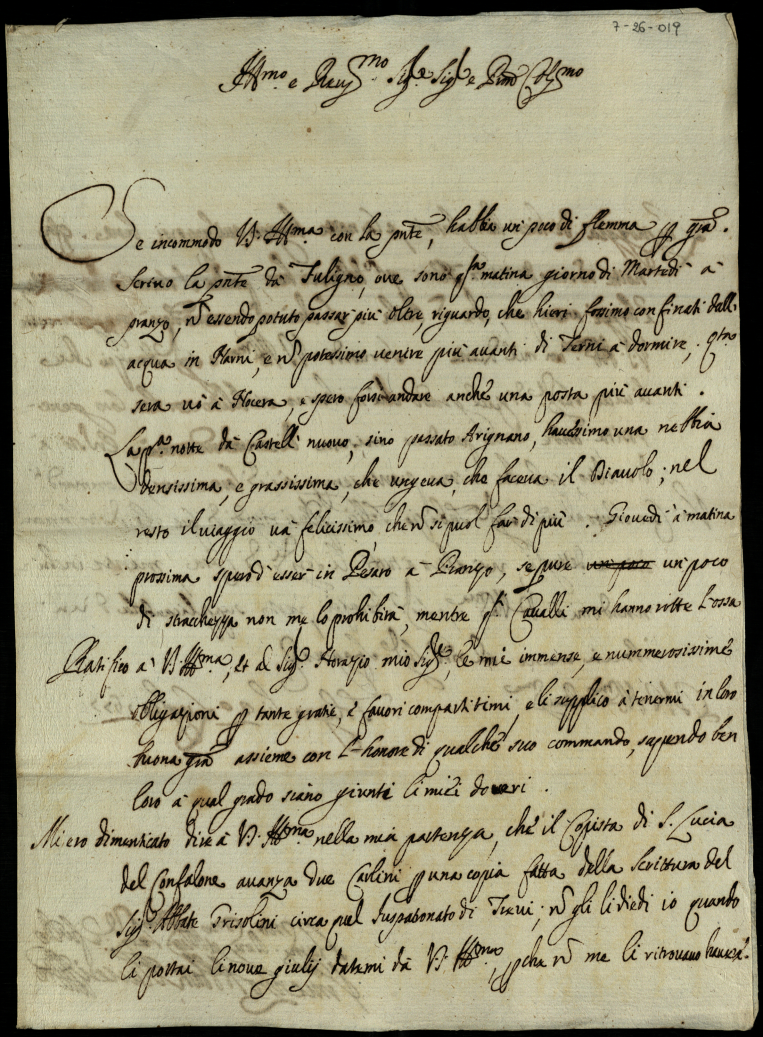 7-26-019
Ill.mo e Rev.mo Sig.e Sig.e e Pron Col.mo
Se incommodo V.S. Ill.ma con la pnte, habbia un poco di flemma p gra.
Scrivo la pnte da Fuligno, ove sono q.sta matina giorno di Martedi à
pranzo, nõ essendo potuto passar più oltre riguardo, che hieri fossimo confinati dall'
acqua in Narni, e nõ potessimo venire più avanti di Terni à dormire, q.sta
sera vò à Nocera, e spero forsi andare anche una posta più avanti.
La p.a notte da Castell nuovo, sino passato Arignano, havessimo una nebbia
densissima, e grassissima, che ungeva, che faceva il Diavolo; nel
resto il viaggio và felicissimo, che nõ si puol far di più. Giovedi à matina
prossima spero d'esser in Pesaro à Pranzo, se pure un poco un poco
di stracchezza non me lo prohibirà, mentre q.ti Cavalli mi hanno rotte l'ossa
Ratifico à V.S. Ill.ma, et al Sig.r Horazio mio Sig.re, le mie immense, e nummerosissime
obligazioni p tante gratie, e favori compartitimi, e li supplico à tenermi in loro
buona gra assieme con l'honore di qualche suo commando, sapendo ben
loro à qual grado siano giunti li miei doveri.
Mi ero dimenticato dire à V.S. Ill.ma nella mia partenza, che il Copista di S. Lucia
del Confalone avanza due Carlini p una copia fatta della scrittura del
Sig.r Abbate Grisolini circa quel Juspatronato di Trevi; nõ gli li diedi io quando
li portai li nove giulij datemi da V.S. Ill.ma, pche nõ me li ritrovavo havere.